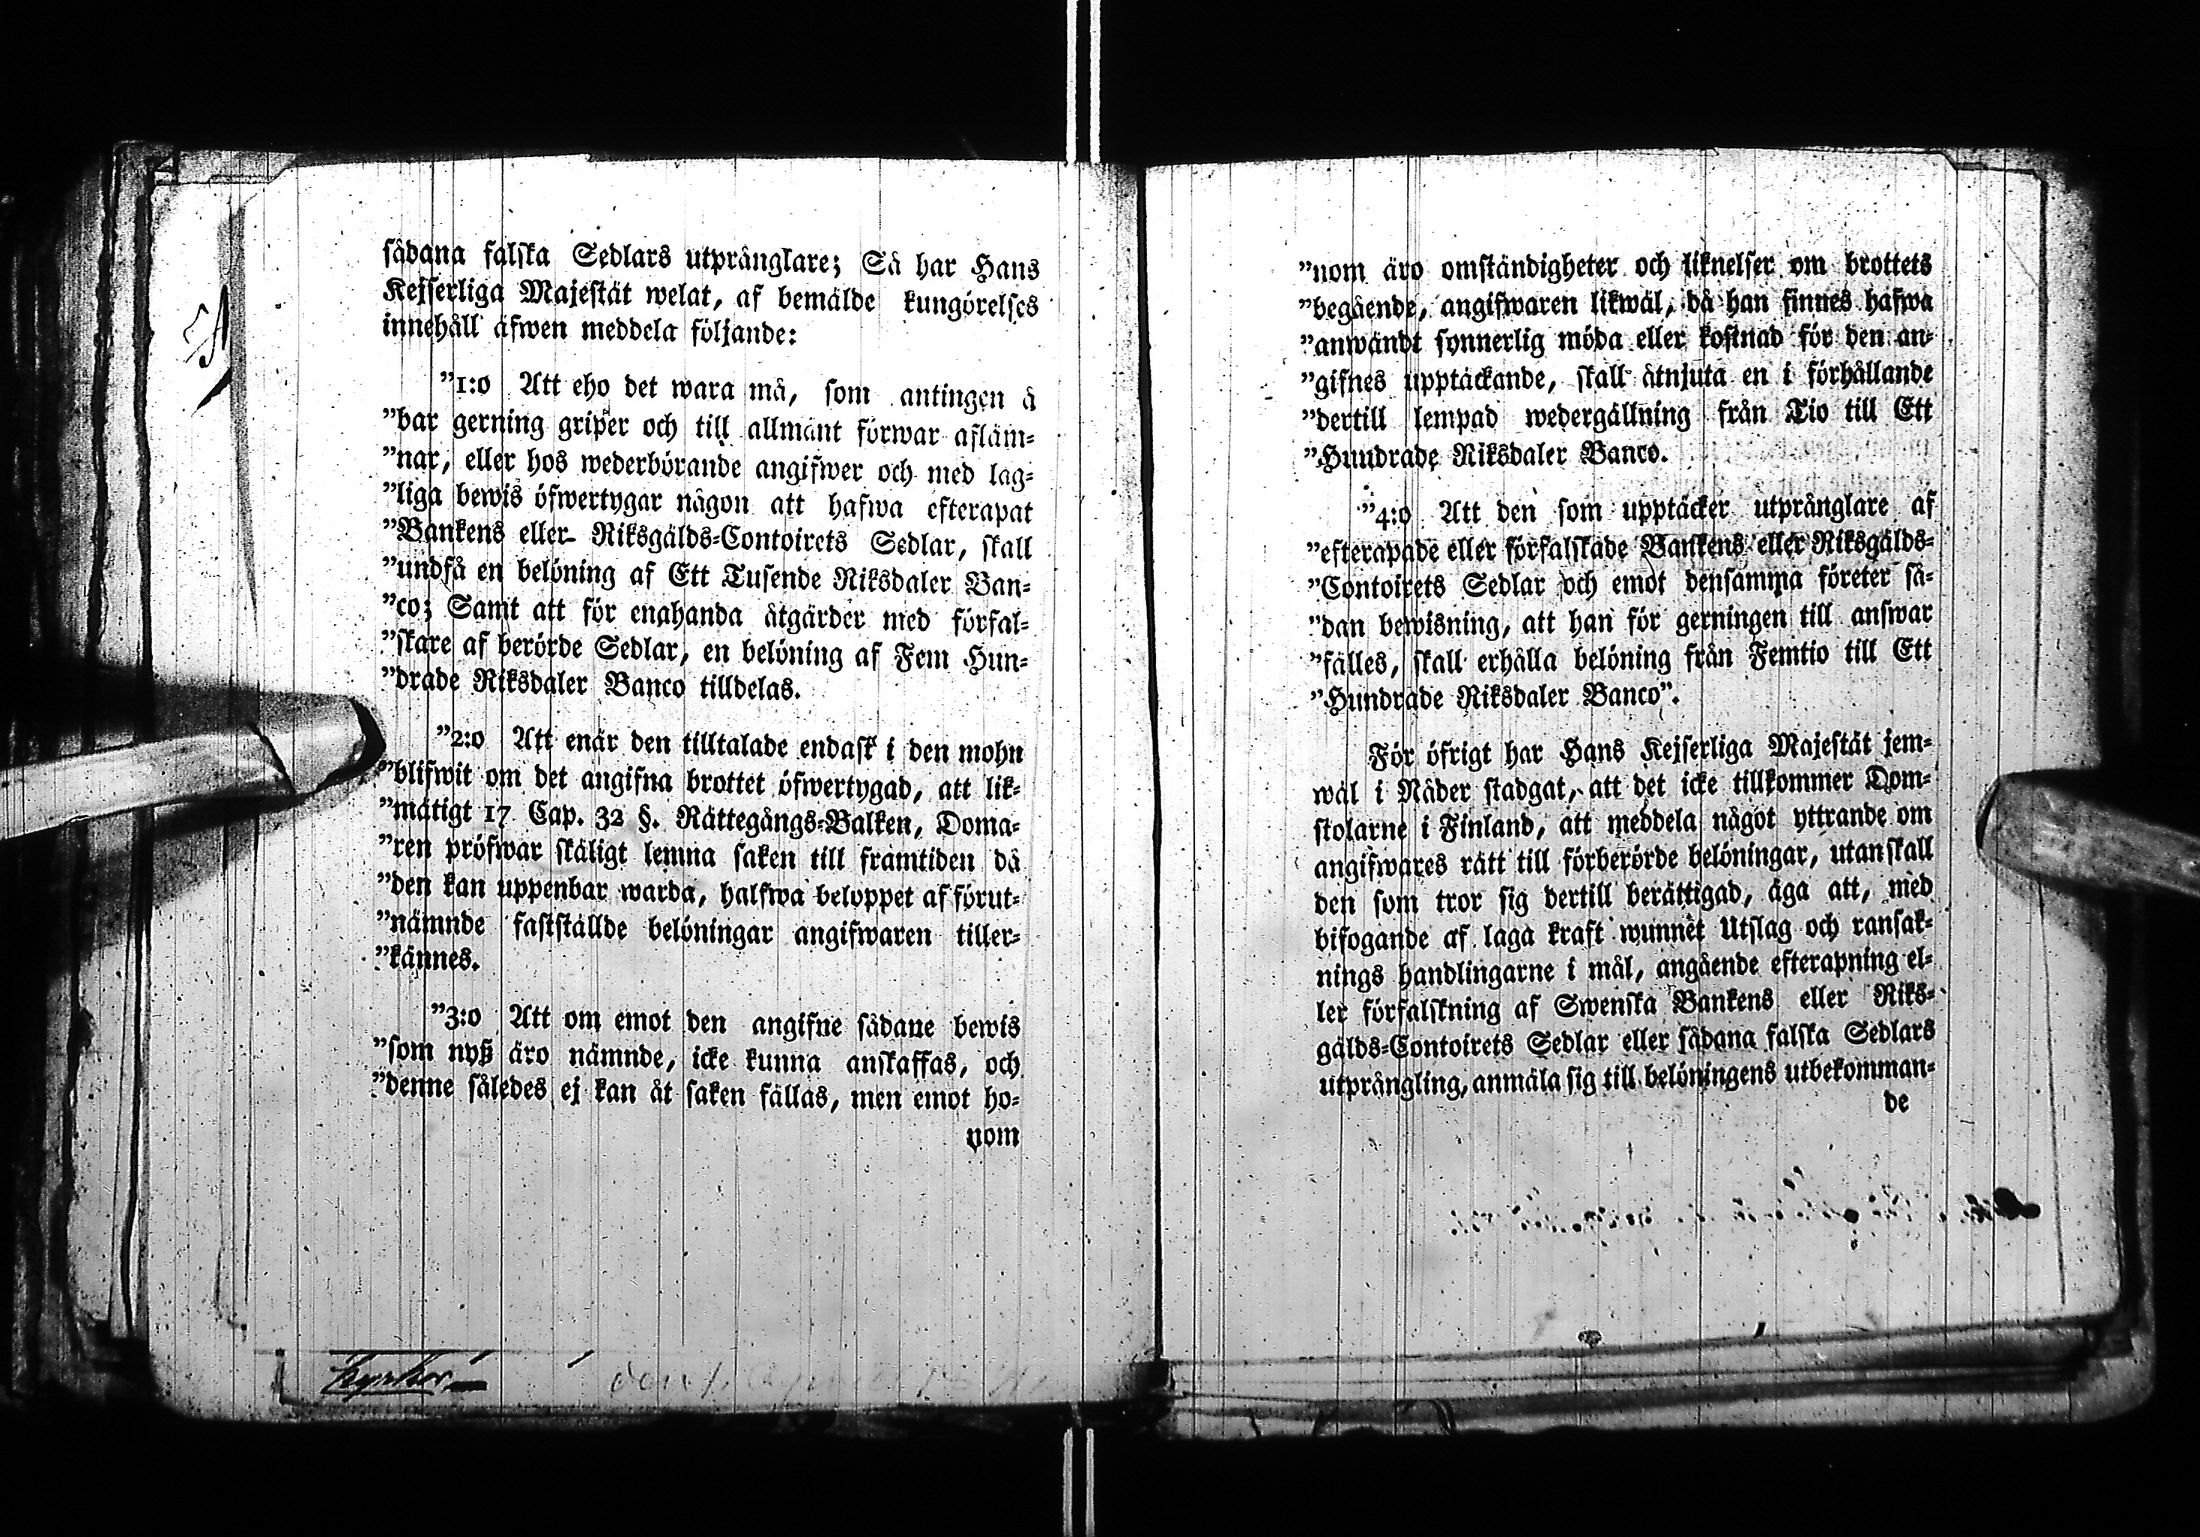 sådana falska Sedlars utprånglare; Så har Hans
Kejserliga Majestät welat, af bemälde kungörelses
innehåll äfwen meddela följande:
"1:o Att eho det wara må, som antingen å
"bar gerning griper och till allmänt förwar afläm-
"nar, eller hos wederbörande angifwer och med lag-
"liga bewis öfwertygar någon att hafwa efterapat
"Bankens eller Riksgälds-Contoirets Sedlar, skall
"undfå en belöning af Ett Tusende Riksdaler Ban-
"co; Samt att för enahanda åtgärder med förfal-
"skare af berörde Sedlar, en belöning af Fem Hun-
"drade Riksdaler Banco tilldelas.
"2:o Att enär den tilltalade endast i den mohn
"blifwit om det angifna brottet öfwertygad, att lik-
"mätigt 17 Cap. 32 §. Rättegångs-Balken, Doma-
"ren pröfwar skäligt lemna saken till framtiden då
"den kan uppenbar warda, halfwa beloppet af förut-
"nämnde fastställde belöningar angifwaren tiller-
"kännes.
"3:o Att om emot den angifne sådane bewis
"som nyß äro nämnde, icke kunna anskaffas, och
"denne således ej kan åt saken fällas, men emot ho-
nom
"nom äro omständigheter och liknelser om brottets
"begående, angifwaren likwäl, då han finnes hafwa
"anwändt synnerlig möda eller kostnad för den an-
"gifnes upptäckande, skall åtnjuta en i förhållande
"dertill lempad wedergällning från Tio till Ett
"Hundrade Riksdaler Banco.
"4:o Att den som upptäcker utprånglare af
"efterapade eller förfalskade Bankens eller Riksgälds-
"Contoirets Sedlar och emot densamma företer så-
"dan bewisning, att han för gerningen till answar
"fälles, skall erhålla belöning från Femtio till Ett
"Hundrade Riksdaler Banco".
För öfrigt har Hans Kejserliga Majestät jem-
wäl i Nåder stadgat, att det icke tillkommer Dom-
stolarne i Finland, att meddela något yttrande om
angifwares rätt till förberörde belöningar, utan skall
den som tror sig dertill berättigad, äga att, med
bifogande af laga kraft wunnet Utslag och ransak-
nings handlingarne i mål, angående efterapning el-
ler förfalskning af Swenska Bankens eller Riks-
gälds-Contoirets Sedlar eller sådana falska Sedlars
utprångling, anmäla sig till belöningens utbekomman-
de